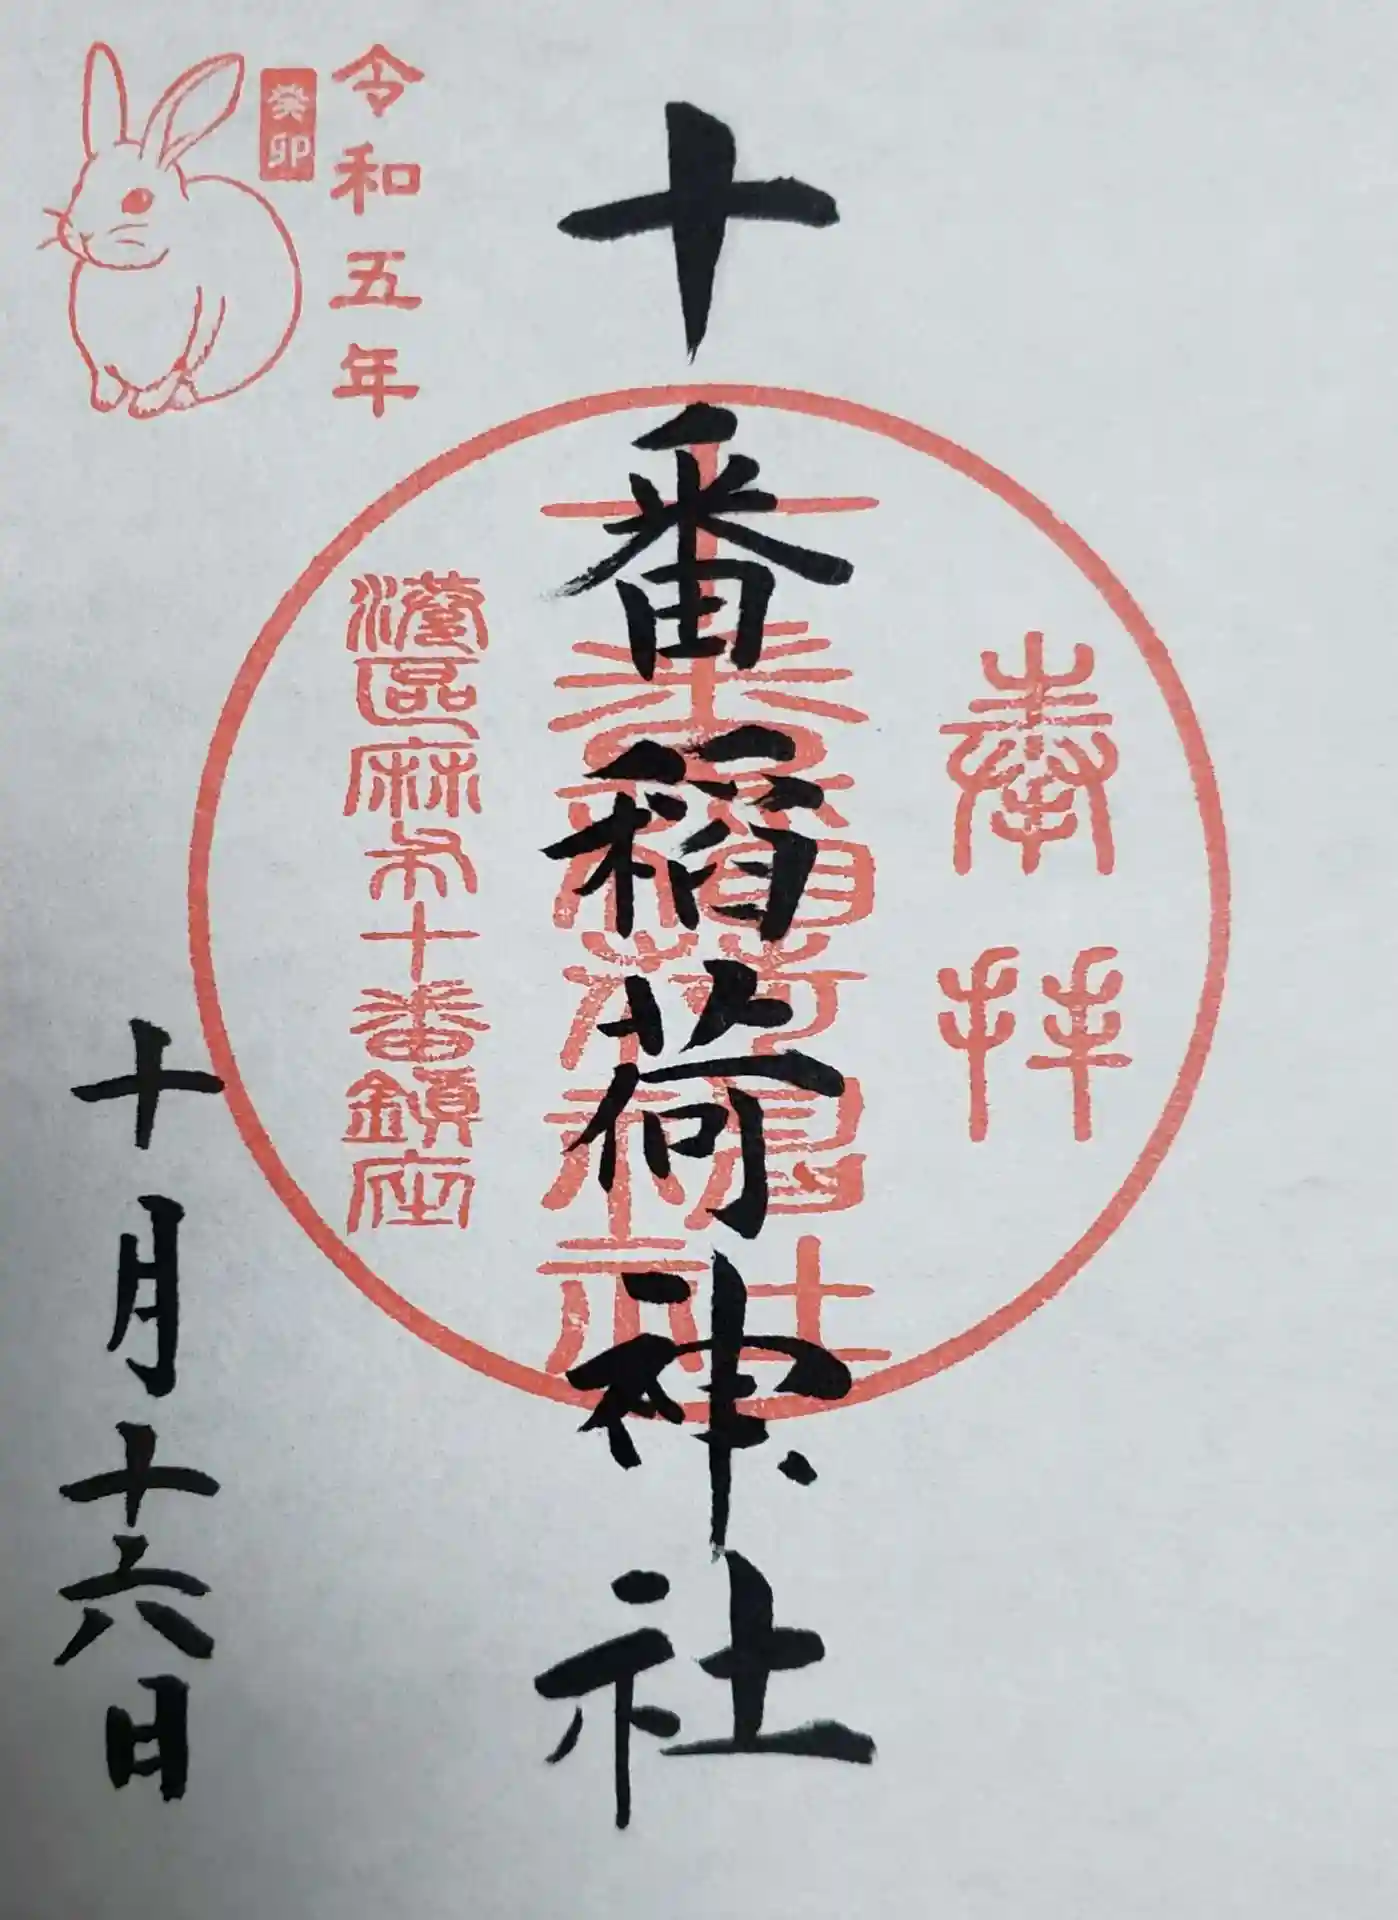 奉拝
十番稲荷神社
十番稲荷神社
港區麻布十番鎮座
令和五年
癸卯
十月十六日